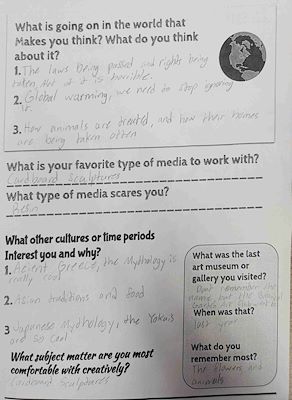 What is going on in the world that
Makes you think? What do you think
about it?
1. The laws being passed and rights being
taken, all of it is horrible.
2. Global warming, we need to stop ignoring
it.
3. How animals are treated, and how their homes
are being taken often
What is your favorite type of media to work with?
Cardboard Sculptures
What type of media scares you?
Resin
What other cultures or time periods
Interest you and why?
1. Acient Greece, the Mythology is
really cool
2. Asian traditions and food
3 Japanese Mythology, the Yokais
are so cool
What subject matter are you most
comfortable with creatively?
Cardboard Sculptures
What was the last
art museum or
gallery you visited?
Dont remember the
name, but the
When was that?
last year
What do you
remember most?
The flowers and
animals